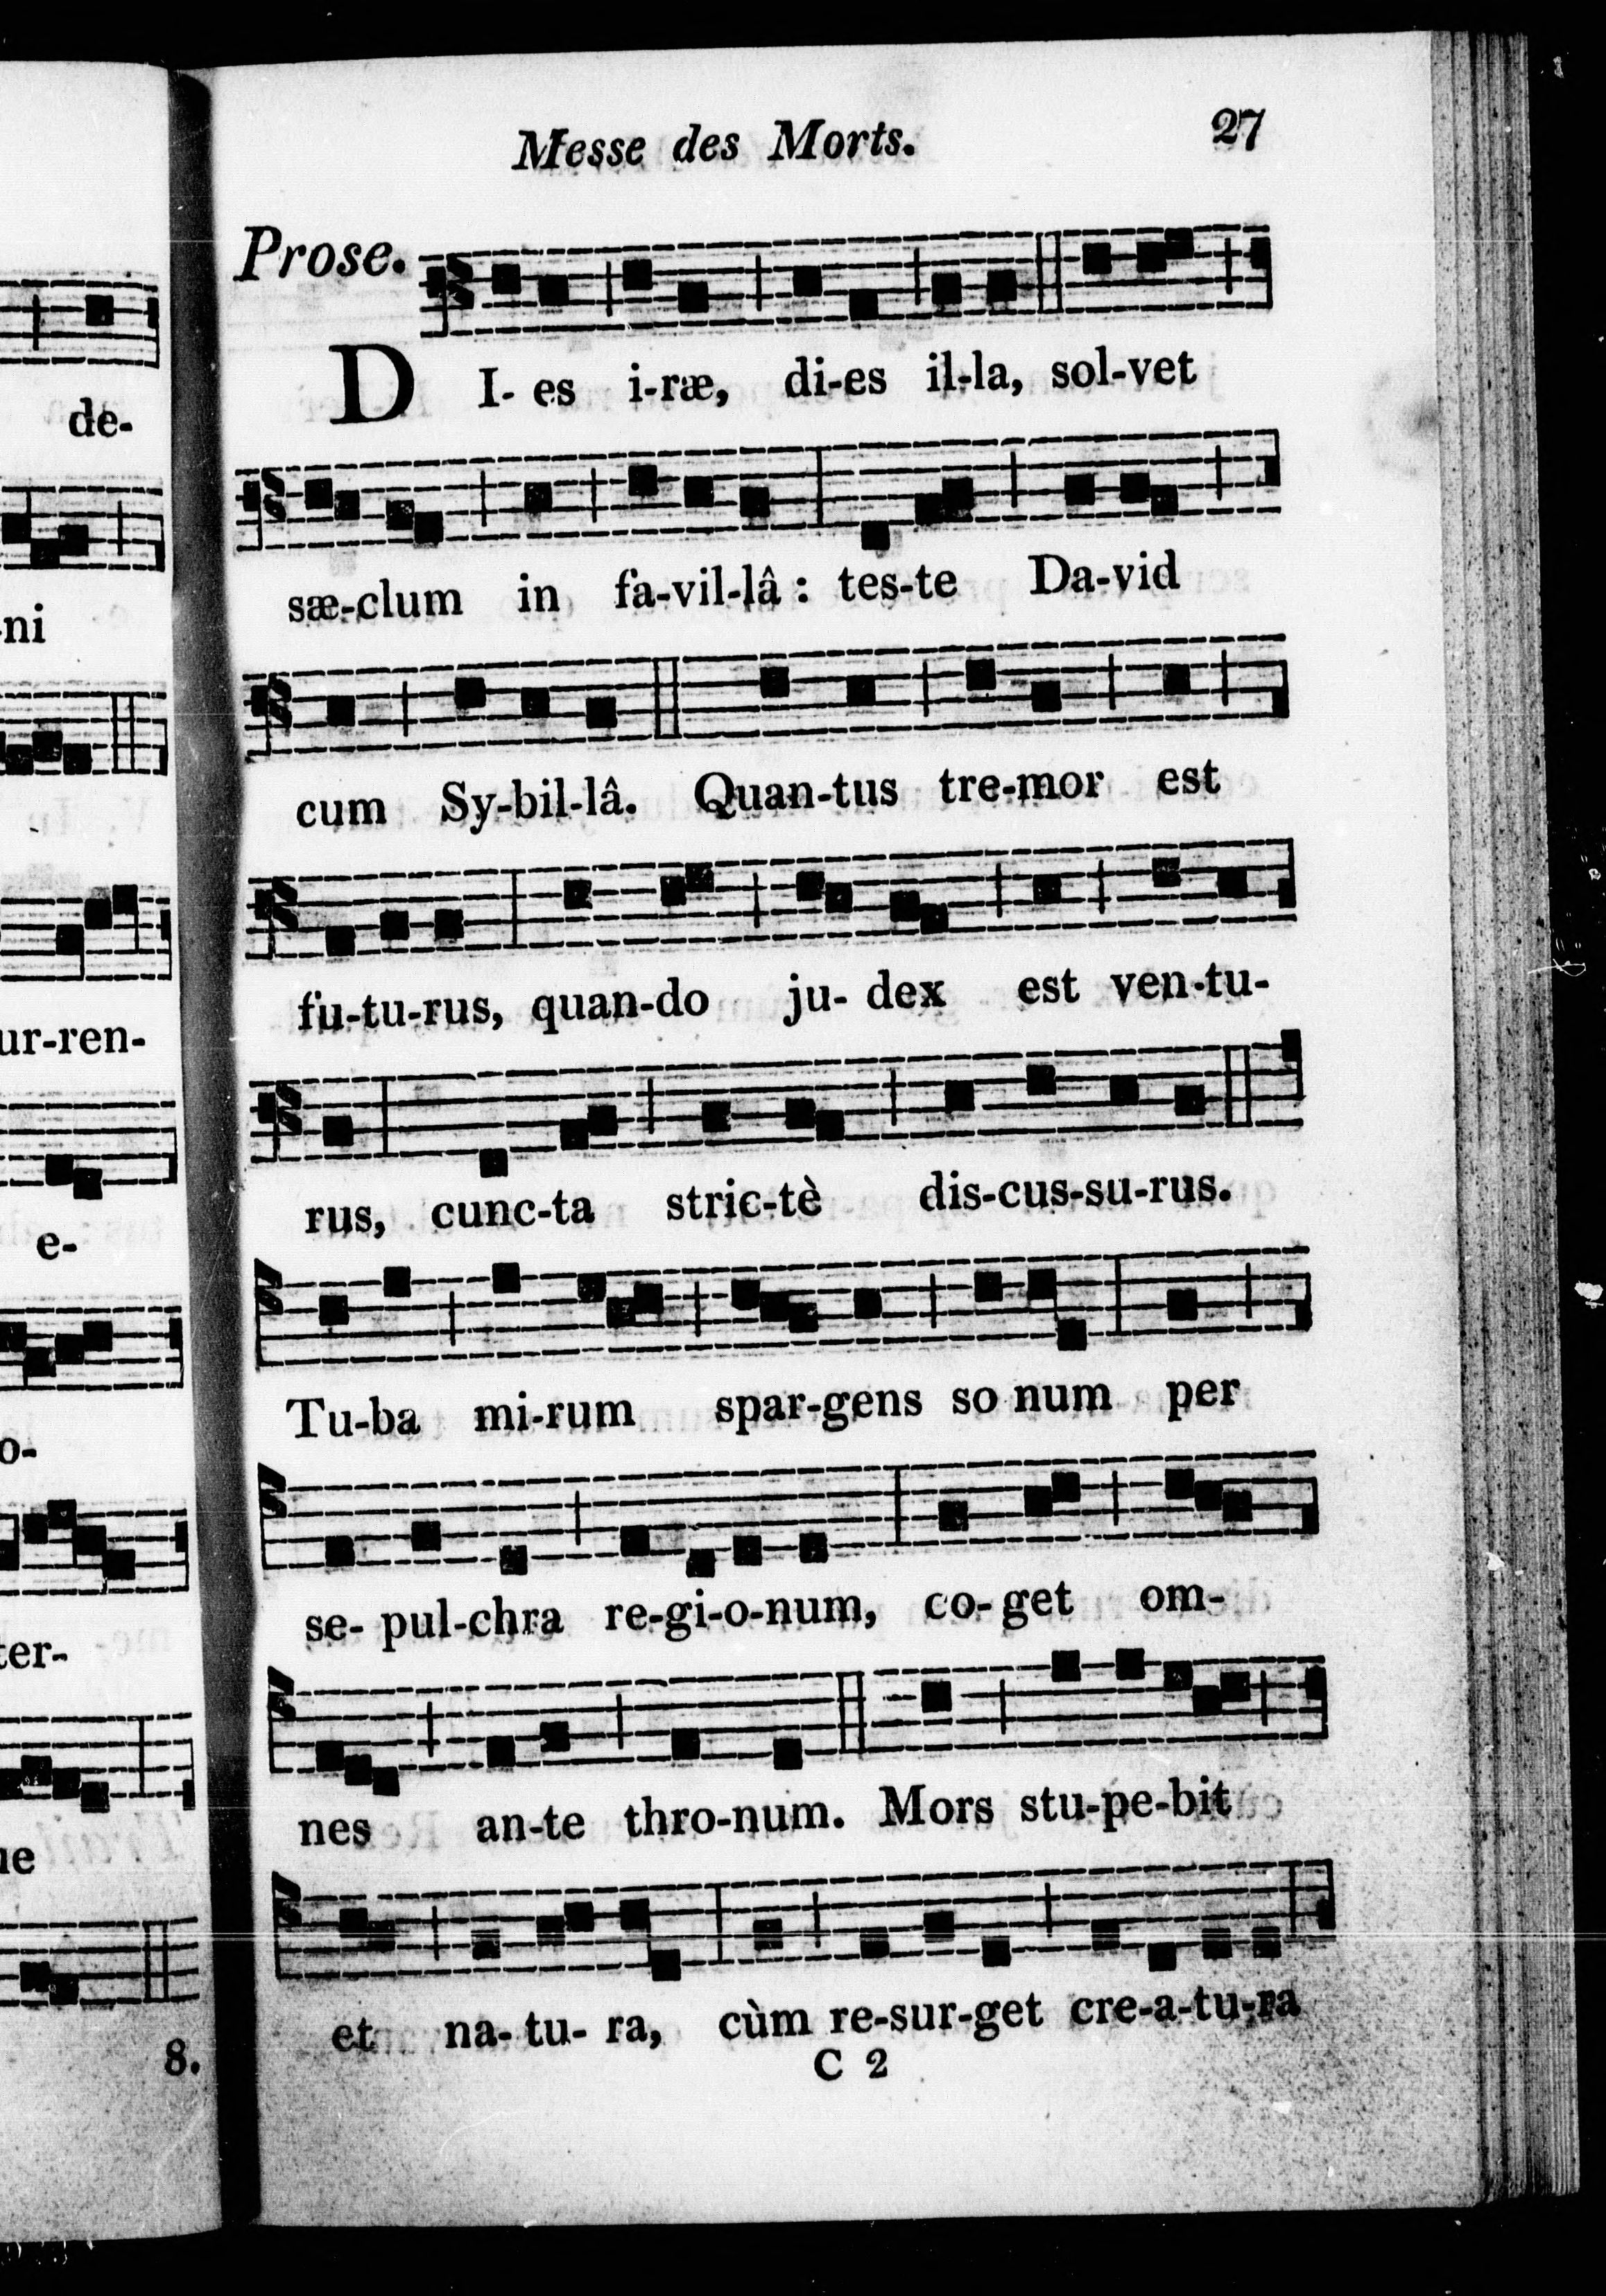 Messe des Morts. 27
Prose.
DI- es i-ræ, di-es il-la, sol-vet
de-
sæ-clum in fa-vil-lâ : tes-te Da-vid
-ni
cum Sy-bil-lâ. Quan-tus tre-mor est
fu-tu-rus, quan-do ju- dex est ven-tu-
ur-ren-
rus, cunc-ta stric-tè dis-cus-su-rus.
e-
Tu-ba mi-rum spar-gens so num per
o-
se- pul-chra re-gi-o-num, co- get om-
ter-
nes an-te thro-num. Mors stu-pe-bit
et na- tu- ra, cùm re-sur-get cre-a-tu-ra
8.
C 2